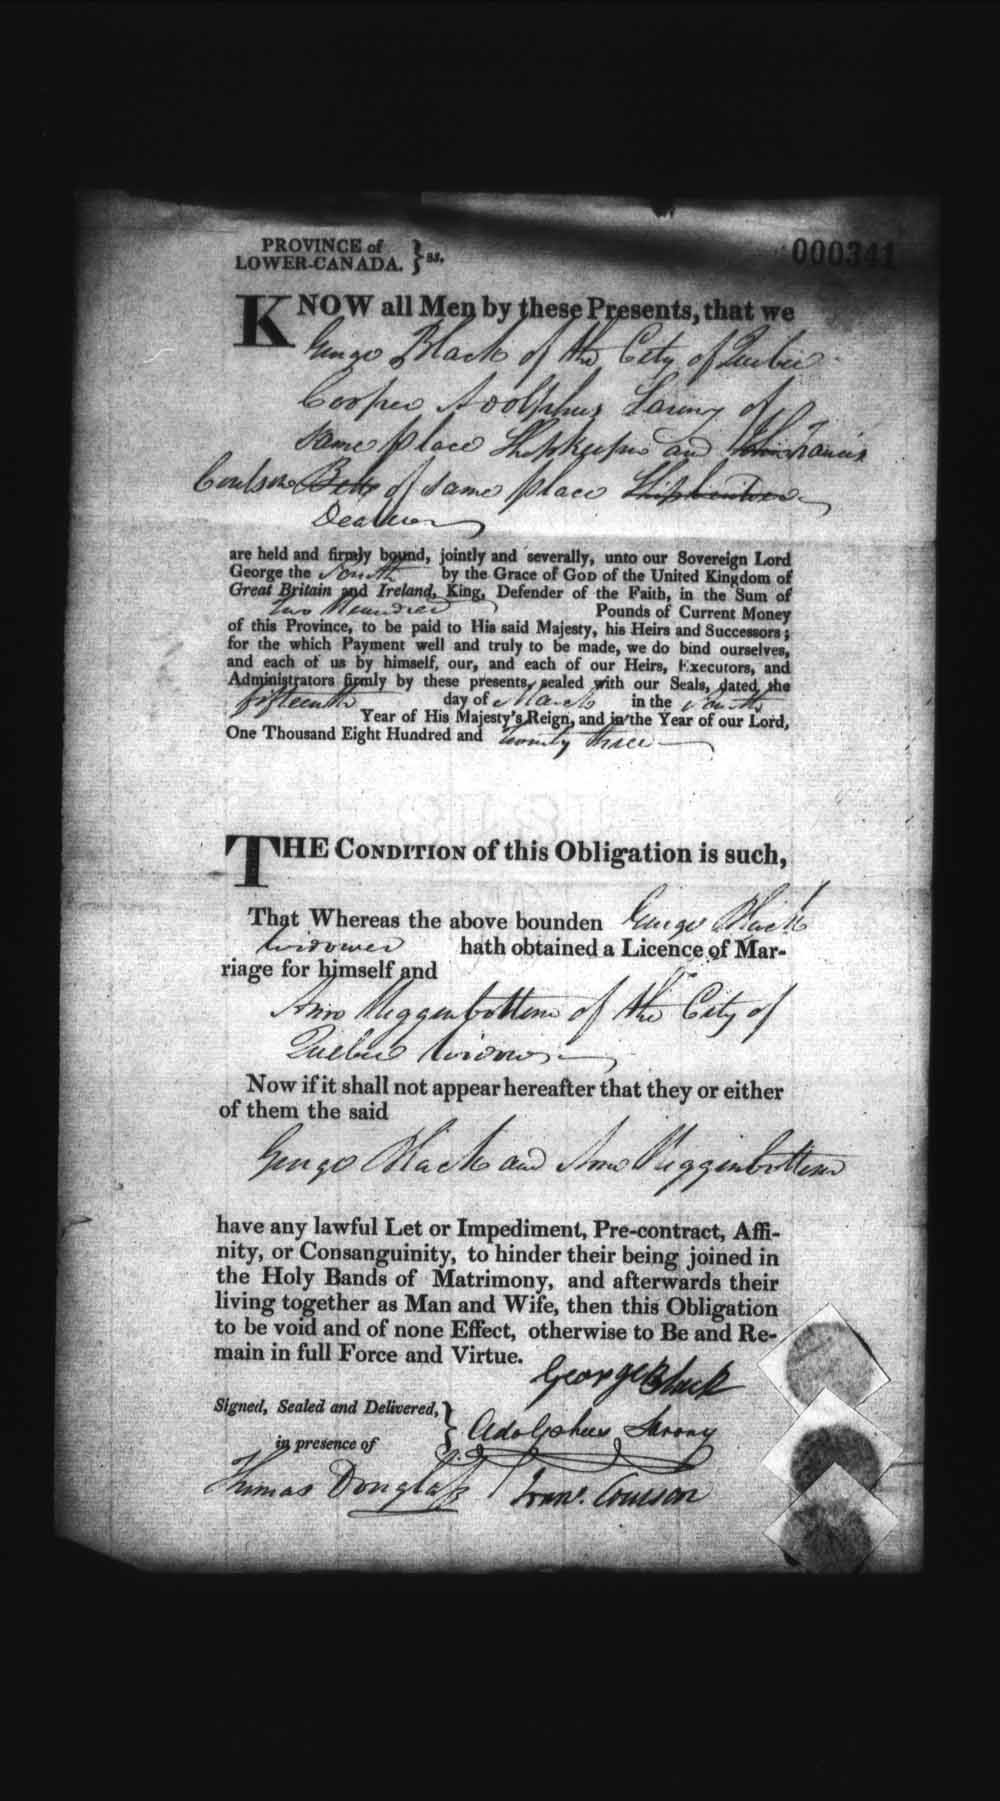 PROVINCE of
LOWER-CANADA. } ss.
000341
KNOW all Men by these Presents, that we
George Black of the City of Quebec
Cooper Adolphus Larony of
same place Shopkeeper and John Francis
Coulson Bett of same place
are held and firmly bound, jointly and severally, unto our Sovereign Lord
George the Fourth by the Grace of GOD of the United Kingdom of
Great Britain and Ireland, King, Defender of the Faith, in the Sum of
Two Hundred Pounds of Current Money
of this Province, to be paid to His said Majesty, his Heirs and Successors;
for the which Payment well and truly to be made, we do bind ourselves,
and each of us by himself, our, and each of our Heirs, Executors, and
Administrators firmly by these presents, sealed with our Seals, dated the
fifteenth day of March in the Fourth
Year of His Majesty's Reign, and in the Year of our Lord,
One Thousand Eight Hundred and Twenty three
THE CONDITION of this Obligation is such,
That Whereas the above bounden George Black
widower hath obtained a Licence of Mar-
riage for himself and
Ann Higginbottom of the City of
Quebec widow
Now if it shall not appear hereafter that they or either
of them the said
George Black and Ann Higginbottom
have any lawful Let or Impediment, Pre-contract, Affi-
nity, or Consanguinity, to hinder their being joined in
the Holy Bands of Matrimony, and afterwards their
living together as Man and Wife, then this Obligation
to be void and of none Effect, otherwise to Be and Re-
main in full Force and Virtue.
George Black
Signed, Sealed and Delivered,
in presence of
Adolphus Larony
Thomas Douglass
Frans. Coulson